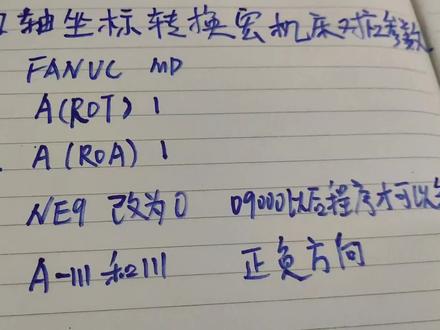 轴坐标转换宏机床对应参数
FANUC MD
A(ROT) 1
A(ROA) 1
NE9 改为0 O9000以后程序才可以
A-111和111 正负方向